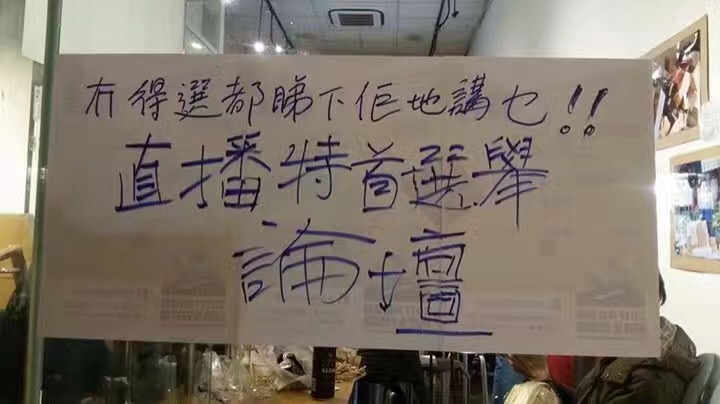 冇得選都睇下佢地講乜!!
直播特首選舉
論壇